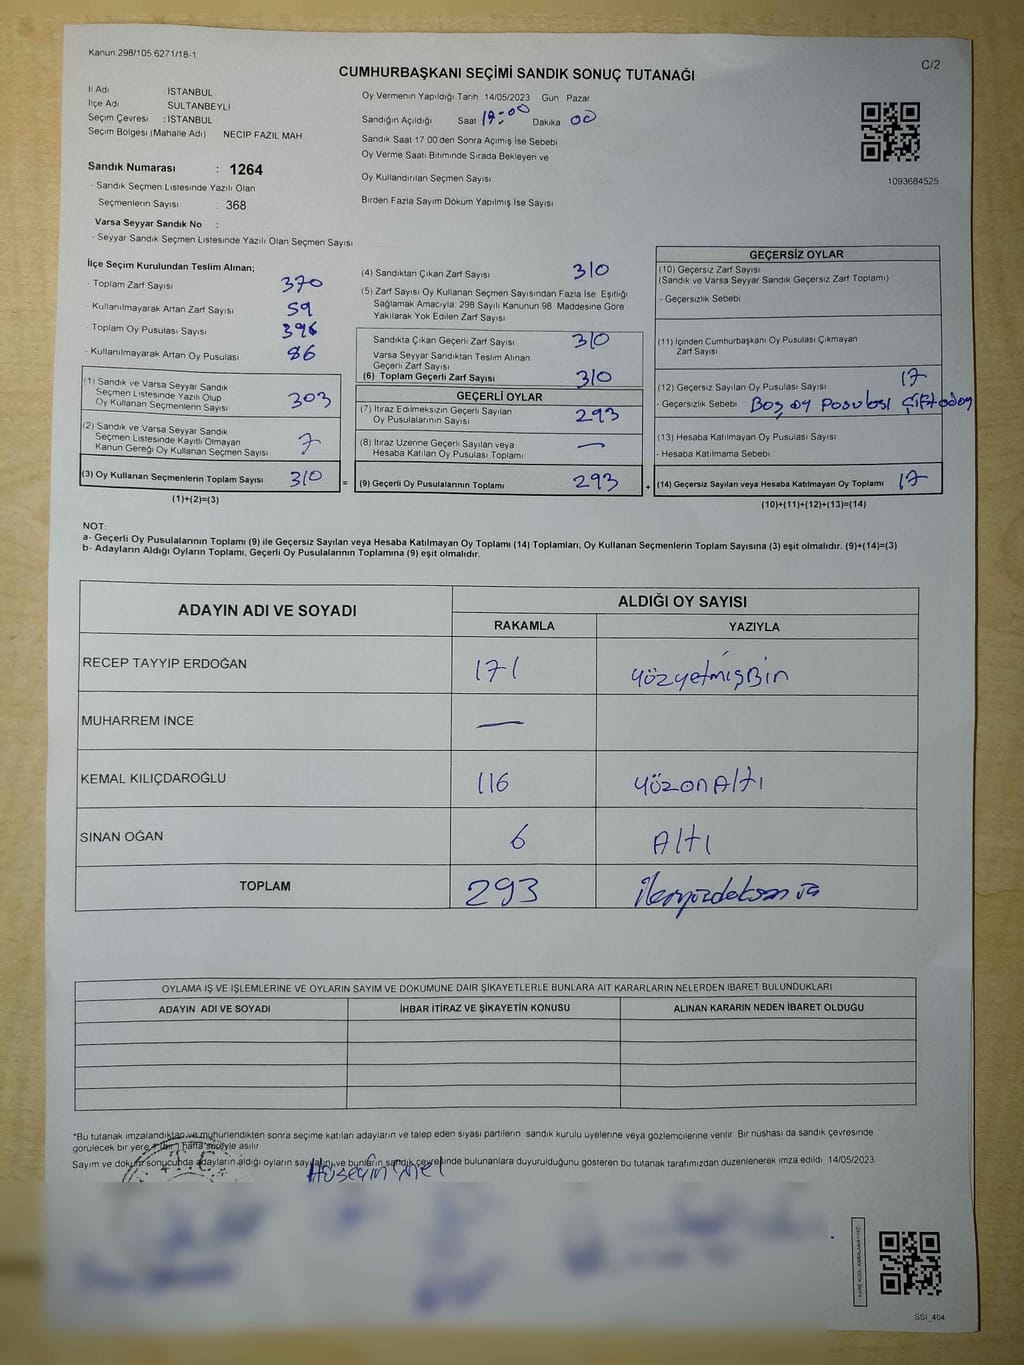 Kanun 298/105.6271/18-1
C/2
CUMHURBAŞKANI SEÇİMİ SANDIK SONUÇ TUTANAĞI
İl Adı İSTANBUL
İlçe Adı SULTANBEYLİ
Seçim Çevresi : İSTANBUL
Seçim Bölgesi (Mahalle Adı) NECİP FAZIL MAH
Oy Vermenin Yapıldığı Tarih 14/05/2023 Gün Pazar
Sandığın Açıldığı Saat Dakika 00
Sandık Saat 17 00'den Sonra Açılmış İse Sebebi
Oy Verme Saati Bitiminde Sırada Bekleyen ve
Oy Kullandırılan Seçmen Sayısı
Birden Fazla Sayım Döküm Yapılmış İse Sayısı
1093684525
Sandık Numarası : 1264
- Sandık Seçmen Listesinde Yazılı Olan
Seçmenlerin Sayısı : 368
Varsa Seyyar Sandık No :
- Seyyar Sandık Seçmen Listesinde Yazılı Olan Seçmen Sayısı
İlçe Seçim Kurulundan Teslim Alınan;
- Toplam Zarf Sayısı 370
- Kullanılmayarak Artan Zarf Sayısı 59
- Toplam Oy Pusulası Sayısı 396
- Kullanılmayarak Artan Oy Pusulası 86
(1) Sandık ve Varsa Seyyar Sandık
Seçmen Listesinde Yazılı Olup
Oy Kullanan Seçmenlerin Sayısı 303
(2) Sandık ve Varsa Seyyar Sandık
Seçmen Listesinde Kayıtlı Olmayan
Kanun Gereği Oy Kullanan Seçmen Sayısı 7
(3) Oy Kullanan Seçmenlerin Toplam Sayısı 310 =
(1)+(2)=(3)
(4) Sandıktan Çıkan Zarf Sayısı 310
(5) Zarf Sayısı Oy Kullanan Seçmen Sayısından Fazla İse, Eşitliği
Sağlamak Amacıyla, 298 Sayılı Kanunun 98. Maddesine Göre
Yakılarak Yok Edilen Zarf Sayısı
Sandıkta Çıkan Geçerli Zarf Sayısı 310
Varsa Seyyar Sandıktan Teslim Alınan
Geçerli Zarf Sayısı
(6) Toplam Geçerli Zarf Sayısı 310
GEÇERLİ OYLAR
(7) İtiraz Edilmeksizin Geçerli Sayılan
Oy Pusulalarının Sayısı 293
(8) İtiraz Üzerine Geçerli Sayılan veya
Hesaba Katılan Oy Pusulası Toplamı —
(9) Geçerli Oy Pusulalarının Toplamı 293 +
GEÇERSİZ OYLAR
(10) Geçersiz Zarf Sayısı
(Sandık ve Varsa Seyyar Sandık Geçersiz Zarf Toplamı)
- Geçersizlik Sebebi
(11) İçinden Cumhurbaşkanı Oy Pusulası Çıkmayan
Zarf Sayısı
(12) Geçersiz Sayılan Oy Pusulası Sayısı 17
- Geçersizlik Sebebi Boş oy Pusulası Çift aday
(13) Hesaba Katılmayan Oy Pusulası Sayısı
- Hesaba Katılmama Sebebi
(14) Geçersiz Sayılan veya Hesaba Katılmayan Oy Toplamı 17
(10)+(11)+(12)+(13)=(14)
NOT:
a- Geçerli Oy Pusulalarının Toplamı (9) ile Geçersiz Sayılan veya Hesaba Katılmayan Oy Toplamı (14) Toplamları, Oy Kullanan Seçmenlerin Toplam Sayısına (3) eşit olmalıdır. (9)+(14)=(3)
b- Adayların Aldığı Oyların Toplamı, Geçerli Oy Pusulalarının Toplamına (9) eşit olmalıdır.
ADAYIN ADI VE SOYADI ALDIĞI OY SAYISI
RAKAMLA YAZIYLA
RECEP TAYYİP ERDOĞAN 171 YüzyetmişBir
MUHARREM İNCE —
KEMAL KILIÇDAROĞLU 116 YüzonAltı
SİNAN OĞAN 6 Altı
TOPLAM 293
OYLAMA İŞ VE İŞLEMLERİNE VE OYLARIN SAYIM VE DÖKÜMÜNE DAİR ŞİKAYETLERLE BUNLARA AİT KARARLARIN NELERDEN İBARET BULUNDUKLARI
ADAYIN ADI VE SOYADI İHBAR İTİRAZ VE ŞİKAYETİN KONUSU ALINAN KARARIN NEDEN İBARET OLDUĞU
*Bu tutanak imzalandıktan ve mühürlendikten sonra seçime katılan adayların ve talep eden siyasi partilerin sandık kurulu üyelerine veya gözlemcilerine verilir Bir nüshası da sandık çevresinde
görülecek bir yere bir hafta süreyle asılır
Sayım ve döküm sonucunda adayların aldığı oyların sayıları ve bunların sandık çevresinde bulunanlara duyurulduğunu gösteren bu tutanak tarafımızdan düzenlenerek imza edildi 14/05/2023
Hüseyin
SSI_404